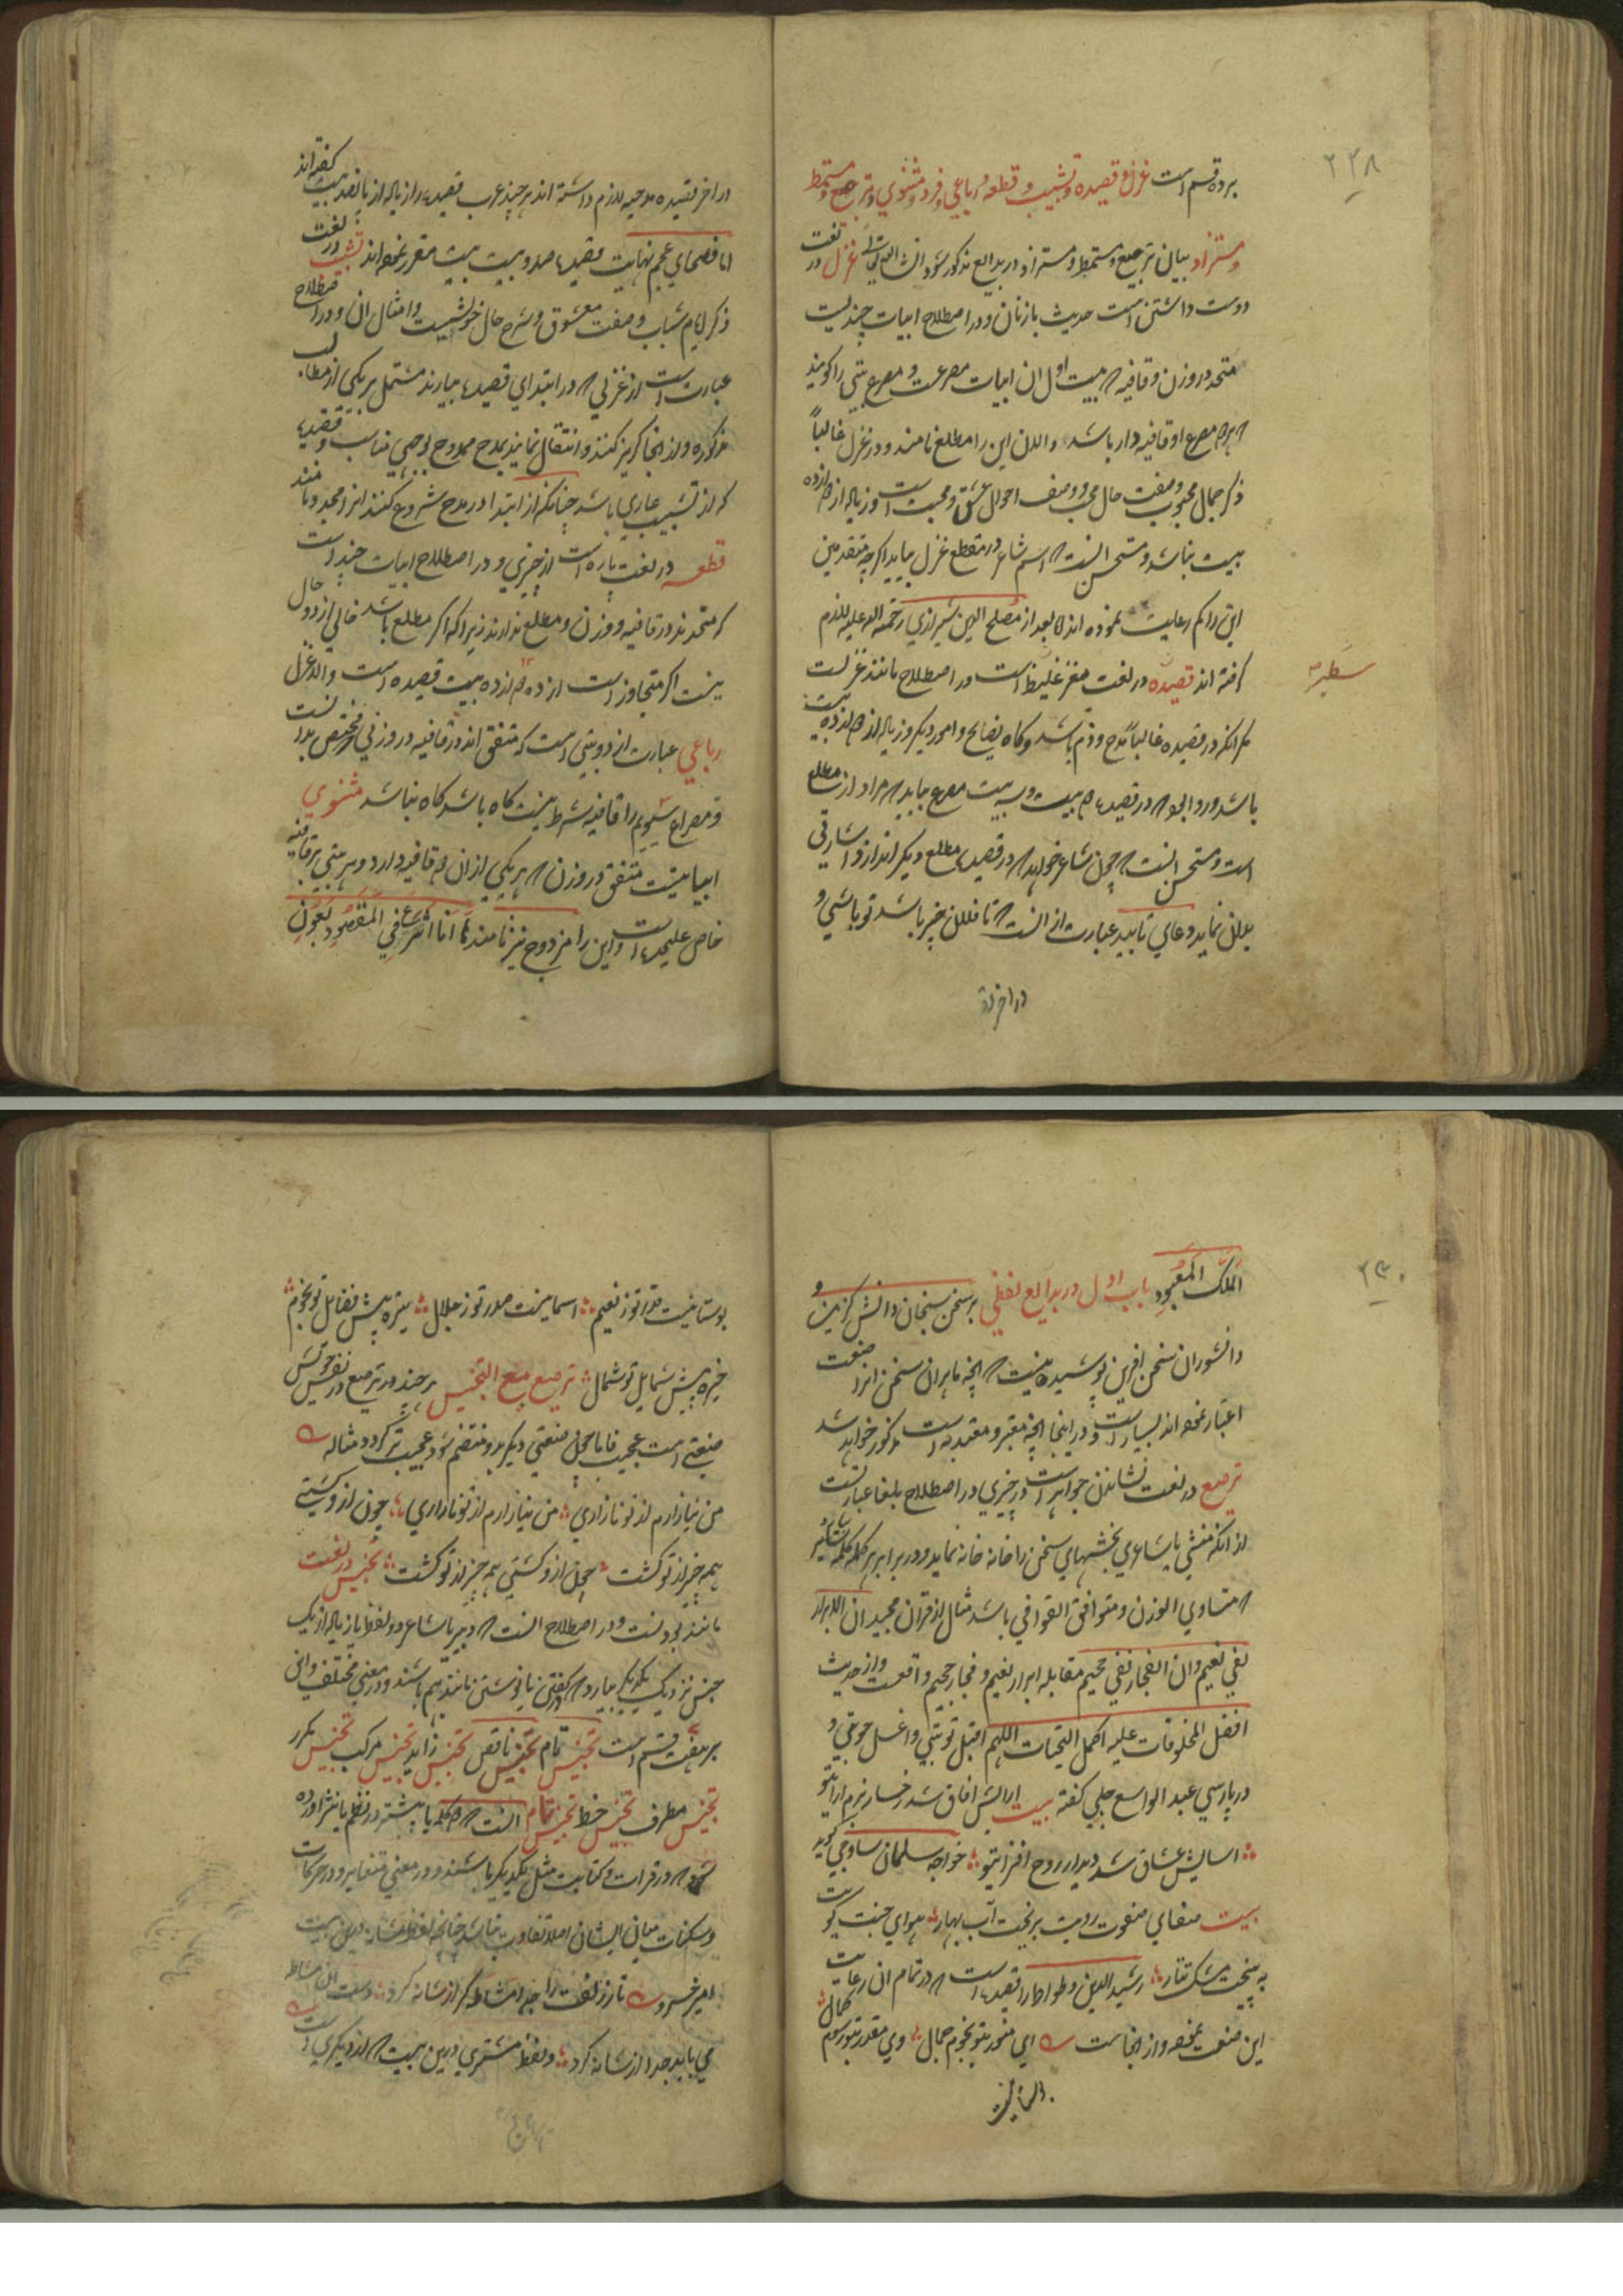 ۲۲۸
بر ده قسم است غزل و قصیده و تشبیب و قطعه و رباعی و فرد و مثنوی و ترجیع و مسمط
و مستزاد بیان ترجیع و مسمط و مستزاد در بدایع مذکور شود انشاالله تعالی غزل در لغت
دوست داشتن است حدیث با زنان و در اصطلاح ابیات چندیست
متحد در وزن و قافیه که بیت اول ان ابیات مصرعست و مصرع بیتی را کویند
که هر دو مصرع او قافیه دار باشد و الان این را مطلع نامند و در غزل غالباً
ذکر جمال محبوب و صفت حال محب و وصف احوال عشق و محبت است و زیاده از دوازده
بیت نباشد و مستحسن انست که اسم شاعر در مقطع غزل بیاید اکرچه متقدمین
این را کم رعایت نموده اند اما بعد از مصلح الدین شیرازی رحمة الله علیه لازم
کرفته اند قصیده در لغت مغز غلیظ است و در اصطلاح مانند غزلست
سطبر
مکر انکه در قصیده غالباً مدح و ذم باشد و کاه نصایح و امور دیکر و زیاده از دوازده بیت
باشد و روا بود که در قصیده دو بیت و سه بیت مصرع بیاید که مراد از مطلع
است و مستحسن انست که چون شاعر خواهد که در قصیده مطلع دیکر اندازد اشارتی
بدان نماید و دعای تابید عبارت از انست که تا فلان چیز باشد تو باشی و
در اخر
در اخر قصیده مدحیه لازم داشته اند هر چند عرب قصیده را زیاده از پانصد بیت کفته اند
اما فصحای عجم نهایت قصیده صد و بیست بیت مقرر نموده اند تشبیب در لغت
ذکر ایام شباب و صفت معشوق و شرح حال خویشست و امثال ان و در اصطلاح
عبارت است از غزلی که در ابتدای قصیده بیارند مشتمل بر یکی از مطالب
مذکوره و از انجا کریز کنند و انتقال نمایند بمدح ممدوح بوجهی مناسب و قصیده
که از تشبیب عاری باشد چنانکه از ابتدا در مدح شروع کنند انرا مجدد نامند
قطعه در لغت پاره است از چیزی و در اصطلاح ابیات چند است
که متحدند در قافیه و وزن و مطلع ندارند زیرا که اکر مطلع باشد خالی از دو حال
نیست اکر متجاوز است از دوازده بیت قصیده است و الا غزل
رباعی عبارت از دو بیتی است که متفق اند در قافیه در وزنی که مختص بدانست
و مصراع سیوم را قافیه شرط نیست کاه باشد کاه نباشد مثنوی
ابیاتیست متفق در وزن که هر یکی از ان دو قافیه دارد و هر بیتی بر قافیه
خاص علیحده است و این را مزدوج نیز نامند ها انا اشرع فی المقصود بعون
۲۳۰
الملک المعبود باب اول در بدایع لفظی بر سخن سنجان دانش کزین و
دانشوران سخن افرین پوشیده نیست که انچه ماهران سخن انرا صنعت
اعتبار نموده اند بسیار است و در اینجا انچه معتبر و معتمد به است مذکور خواهد شد
ترصیع در لغت نشاندن جواهر است در چیزی و در اصطلاح بلغا عبارتست
از انکه منشی یا شاعری بخشهای سخن را خانه خانه نماید و در برابر هر کلمه کلمه بیاورد
که متساوی الوزن و متوافق القوافی باشد مثال از قران مجید ان الابرار
لفی نعیم و ان الفجار لفی جحیم مقابله ابرار نعیم و فجار جحیم واقعست و از حدیث
افضل المخلوقات علیه اکمل التحیات اللهم اقبل توبتی و اغسل حوبتی و
در پارسی عبدالواسع جبلی کفته بیت ارایش افاق شد رخسار بزم ارای تو
اسایش عشاق شد دیدار روح افزای تو خواجه سلمان ساوجی کوید
بیت صفای صفوت رویت بریخت آب بهار هوای جنت کویت
به بیخت مشک تتار رشید الدین وطواط را قصیده است که در تمام ان رعایت
این صنعت نموده و از انجاست ای منور بتو نجوم جمال وی مقرر بتو رسوم کمال
بوستانیست
بوستانیست صدر تو ز نعیم اسمانیست صدر تو ز جلال تیره پیش فضایل تو نجوم
خیره پیش شمایل تو شمال ترصیع مع التجنیس هر چند ترصیع در نفس خویش
صنعتی است عجیب فاما چون صنعتی دیکر بدو منضم شود عجیب تر کردد مثاله
من نیازارم از تو نازاری من نیازارم از تو نازاری چون ازو کشتی
همه چیز از تو کشت چون ازو کشتی همه چیز از تو کشت تجنیس در لغت
مانند بودنست و در اصطلاح انست که دبیر یا شاعر دو لفظ یا زیاده از یک
جنس نزدیک یکدیکر بیارد که در کفتن یا نوشتن مانند هم باشند و در معنی مختلف و این
بر هفت قسم است تجنیس تام تجنیس ناقص تجنیس زاید تجنیس مرکب تجنیس مکرر
تجنیس مطرف تجنیس خط تجنیس تام انست که دو کلمه یا بیشتر در نظم یا نثر اورده
شود که در قرات و کتابت مثل یکدیکر باشند و در معنی متغایر و در حرکات
و سکنات میان ایشان اصلا تفاوت نباشد چنانچه لفظ شانه درین بیت
امیر خسرو تا ز زلفت را جدا مشاطه کر از شانه کرد دست ان مشاطه
می باید جدا از شانه کرد و لفظ مشتری درین بیت که از دیکری است